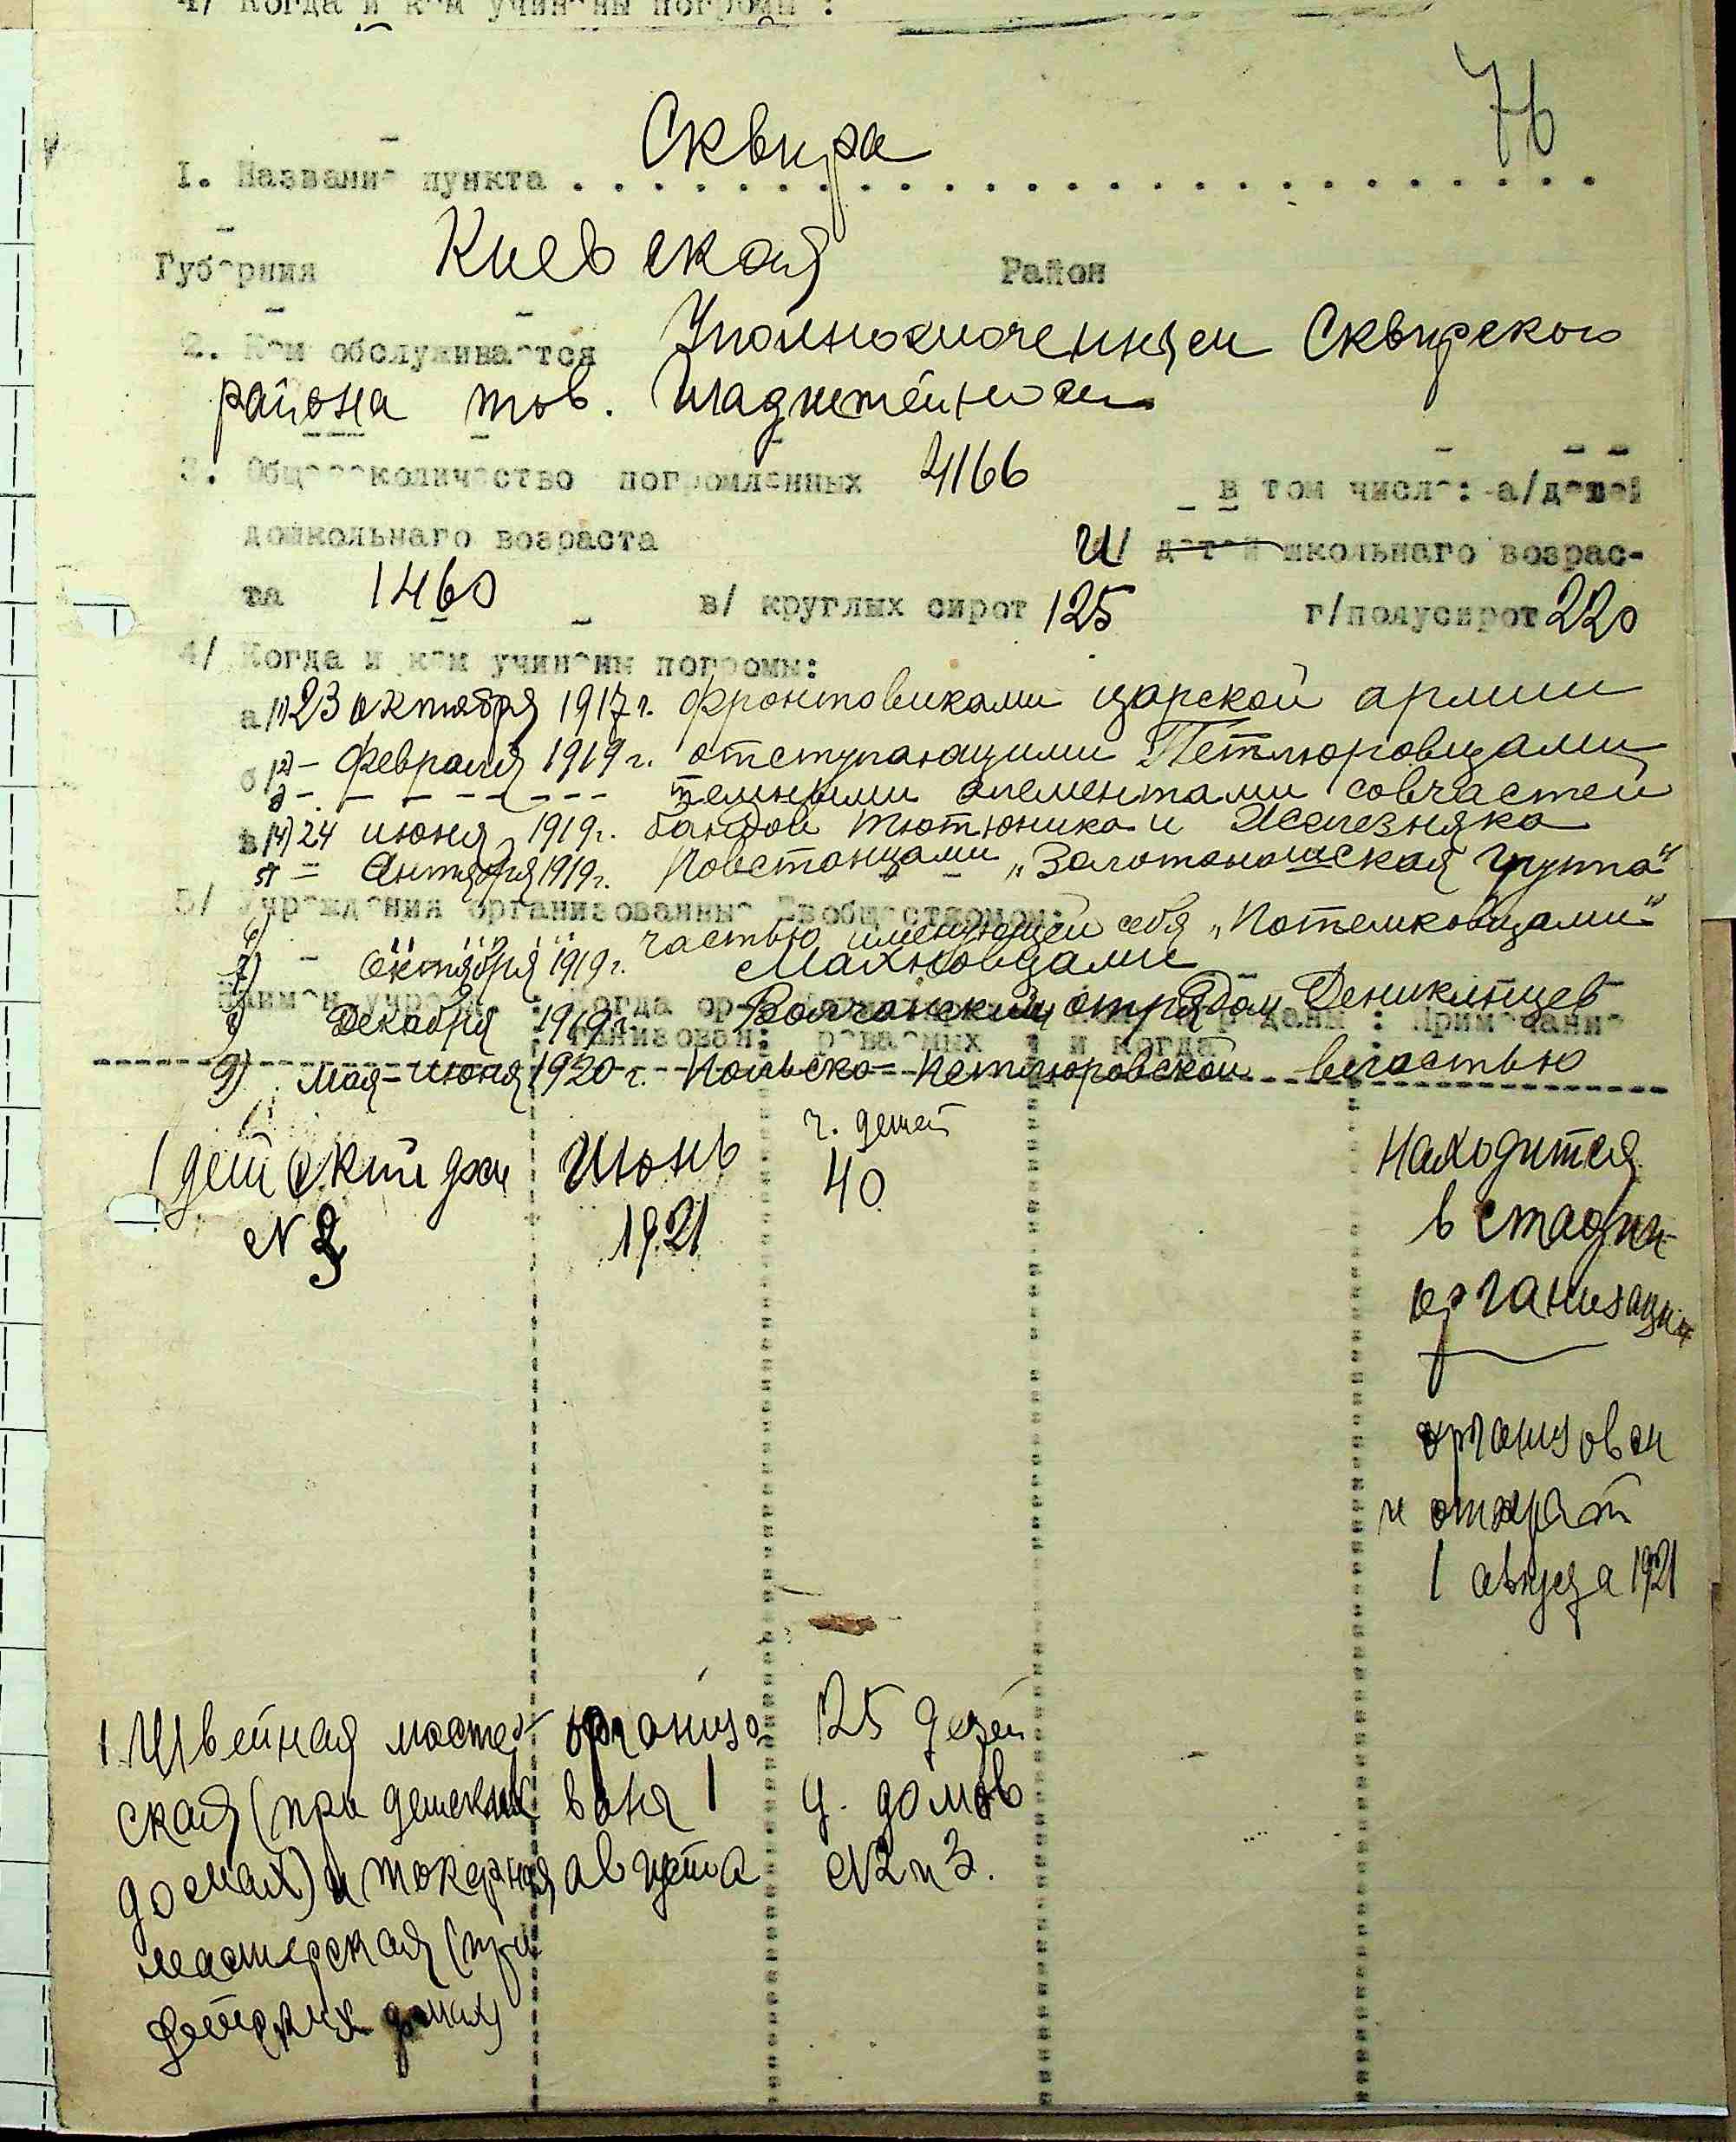 4/ Когда и кем учинены погромы :
76
Сквира
I. Название пункта . . . . . . . . . . . . . . . . . . . . . . . . . .
Губерния Киевская Район
2. Кем обслуживается Уполномоченным Сквирского
района тов.
3. Общее количество погромленных 4166 в том числе: а/детей
дошкольнаго возраста И/ детей школьнаго возрас-
та 1460 в/ круглых сирот 125 г/полусирот 220
4/ Когда и кем учинены погромы:
а/1) 23 октября 1917 г. фронтовиками царской армии
б/2) – февраля 1919 г. отступающими Петлюровцами
3 – – – – – – – – темными элементами совчастей
в/4) 24 июня 1919 г. бандой Тютюника и Железняка
5) = Октября 1919 г. Повстанцами „Золотоношская группа“
5/ Учреждения организованные Евобщесткомом:
6) " " " частью именующей себя „Потемковцами“
7) – октября 1919 г. Махновцами
Наимен. учрежд. : Когда ор-
8) Декабря 1919 г. Волчанским отрядом Деникинцев
ганизован: : и когда : Примечание
9) Мая – Июня 1920 г. Польско-Петлюровской властью
1 детский дом Июнь ч. детей Находится
N 3 1921 40 в стадии
организации
организован
и открыт
1 августа 1921
1. Швейная мастер- организо 125 детей
ская (при детских вана 1 д. домов
домах) и токарная августа N2 и 3.
мастерская (при
детских домах)